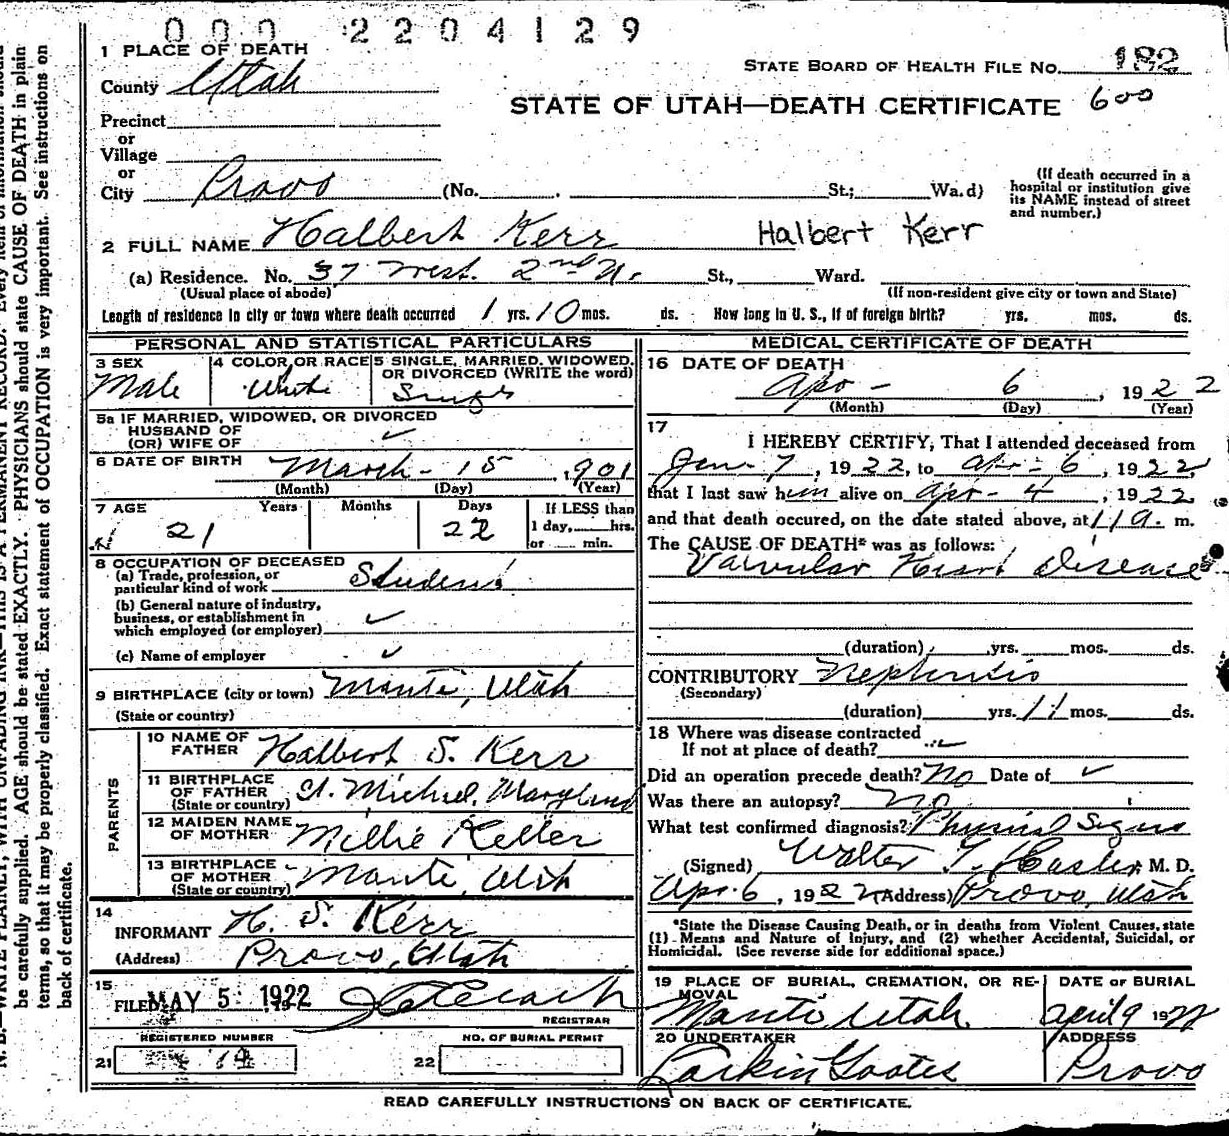 000 2204129
1 PLACE OF DEATH
County Utah
STATE BOARD OF HEALTH FILE No. 182
STATE OF UTAH—DEATH CERTIFICATE 600
Precinct
or
Village
or
City Provo (No. St.; Wa.d)
(If death occurred in a
hospital or institution give
its NAME instead of street
and number.)
2 FULL NAME Halbert Kerr Halbert Kerr
(a) Residence. No. 37 West. 2nd N. St., Ward.
(Usual place of abode) (If non-resident give city or town and State)
Length of residence in city or town where death occurred 1 yrs. 10 mos. ds. How long in U. S., if of foreign birth? yrs. mos. ds.
PERSONAL AND STATISTICAL PARTICULARS
3 SEX
Male
4 COLOR OR RACE
White
5 SINGLE, MARRIED, WIDOWED,
OR DIVORCED (WRITE the word)
Single
5a IF MARRIED, WIDOWED, OR DIVORCED
HUSBAND OF
(OR) WIFE OF
6 DATE OF BIRTH March - 15, 1901
(Month) (Day) (Year)
7 AGE Years Months Days If LESS than
1 day, hrs.
or min.
21 22
8 OCCUPATION OF DECEASED
(a) Trade, profession, or
particular kind of work Student
(b) General nature of industry,
business, or establishment in
which employed (or employer)
(c) Name of employer
9 BIRTHPLACE (city or town) Manti, Utah
(State or country)
PARENTS
10 NAME OF
FATHER Halbert S. Kerr
11 BIRTHPLACE
OF FATHER
(State or country) St. Michael, Maryland
12 MAIDEN NAME
OF MOTHER Millie Keller
13 BIRTHPLACE
OF MOTHER
(State or country) Manti, Utah
14
INFORMANT H. S. Kerr
(Address) Provo, Utah
15
FILED MAY 5 1922
REGISTRAR
REGISTERED NUMBER
21 14
NO. OF BURIAL PERMIT
22
MEDICAL CERTIFICATE OF DEATH
16 DATE OF DEATH
Apr - 6, 1922
(Month) (Day) (Year)
17
I HEREBY CERTIFY, That I attended deceased from
Jan - 7, 1922, to Apr - 6, 1922,
that I last saw him alive on Apr - 4, 1922
and that death occured, on the date stated above, at 11 a. m.
The CAUSE OF DEATH* was as follows:
Valvular Heart Disease
(duration) yrs. mos. ds.
CONTRIBUTORY Nephritis
(Secondary)
(duration) yrs. 11 mos. ds.
18 Where was disease contracted
If not at place of death?
Did an operation precede death? No Date of
Was there an autopsy? No
What test confirmed diagnosis? Physical Signs
(Signed) Walter T. Hasler, M. D.
Apr. 6, 1922 (Address) Provo, Utah
*State the Disease Causing Death, or in deaths from Violent Causes, state
(1) Means and Nature of Injury, and (2) whether Accidental, Suicidal, or
Homicidal. (See reverse side for additional space.)
19 PLACE OF BURIAL, CREMATION, OR RE-
MOVAL
Manti Utah
DATE OF BURIAL
April 9 1922
20 UNDERTAKER
Larkin Goates
ADDRESS
Provo
READ CAREFULLY INSTRUCTIONS ON BACK OF CERTIFICATE.
be carefully supplied. AGE should be stated EXACTLY. PHYSICIANS should state CAUSE OF DEATH in plain
terms, so that it may be properly classified. Exact statement of OCCUPATION is very important. See instructions on
back of certificate.